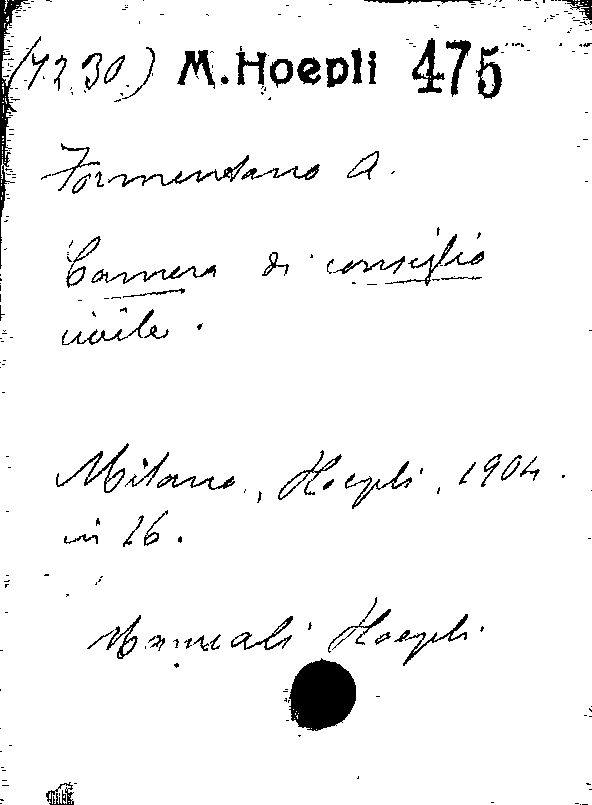 (7230) M.Hoepli 475
Formentano A.
Camera di consiglio
civile.
Milano, Hoepli, 1904.
in 16.
Manuali Hoepli